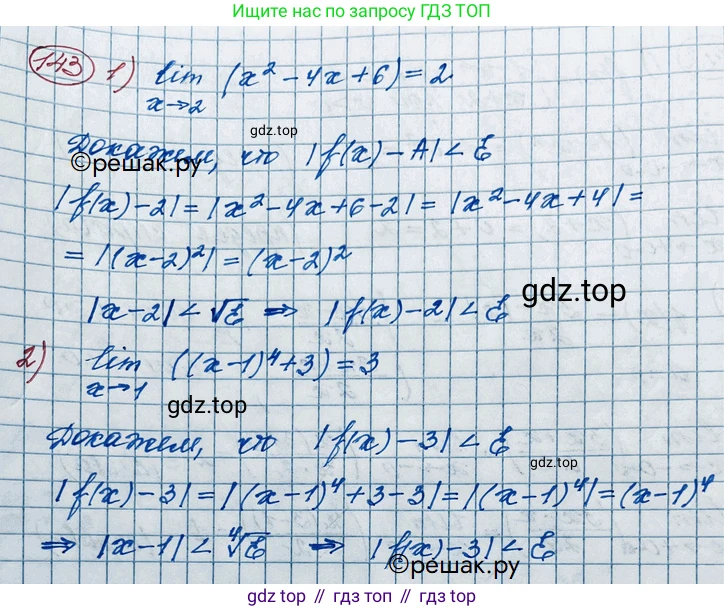 Ищите нас по запросу ГДЗ ТОП
143 1) lim (x² - 4x + 6) = 2
x→2
gdz.top
Докажем, что |f(x) - A| < Ɛ
©решак.ру
|f(x) - 2| = |x² - 4x + 6 - 2| = |x² - 4x + 4| =
= |(x - 2)²| = (x - 2)²
gdz.top
|x - 2| < √Ɛ ⇒ |f(x) - 2| < Ɛ
2) lim ((x - 1)⁴ + 3) = 3
x→1
gdz.top
Докажем, что |f(x) - 3| < Ɛ
gdz.top
|f(x) - 3| = |(x - 1)⁴ + 3 - 3| = |(x - 1)⁴| = (x - 1)⁴
⇒ |x - 1| < ⁴√Ɛ ⇒ |f(x) - 3| < Ɛ
©решак.ру
gdz.top
gdz top // гдз топ // gdz.top